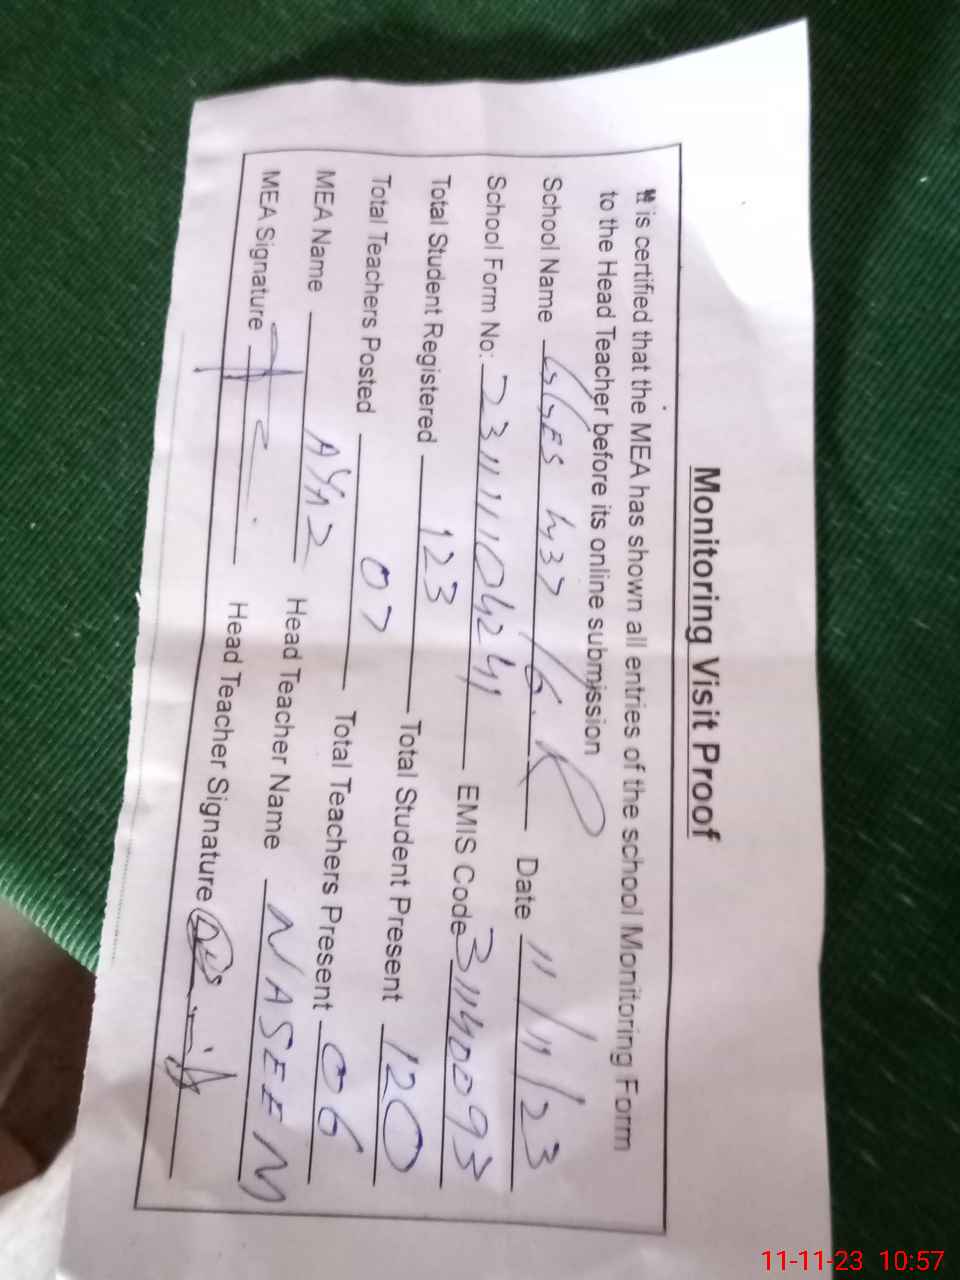 Monitoring Visit Proof
It is certified that the MEA has shown all entries of the school Monitoring Form
to the Head Teacher before its online submission
School Name GGES 437/6.R Date 11/11/23
School Form No: 23111104241 EMIS Code 31140093
Total Student Registered 123 Total Student Present 120
Total Teachers Posted 07 Total Teachers Present 06
MEA Name AYAZ Head Teacher Name NASEEM
MEA Signature Head Teacher Signature
11-11-23 10:57